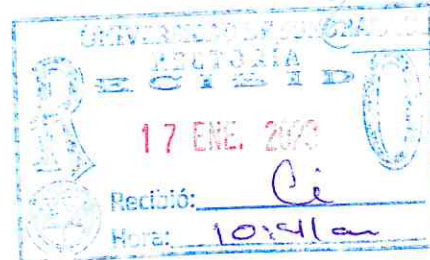 UNIVERSIDAD DE
RECTORÍA
RECIBIDO
17 ENE. 2023
Recibió: Ci
Hora: 10:41 am